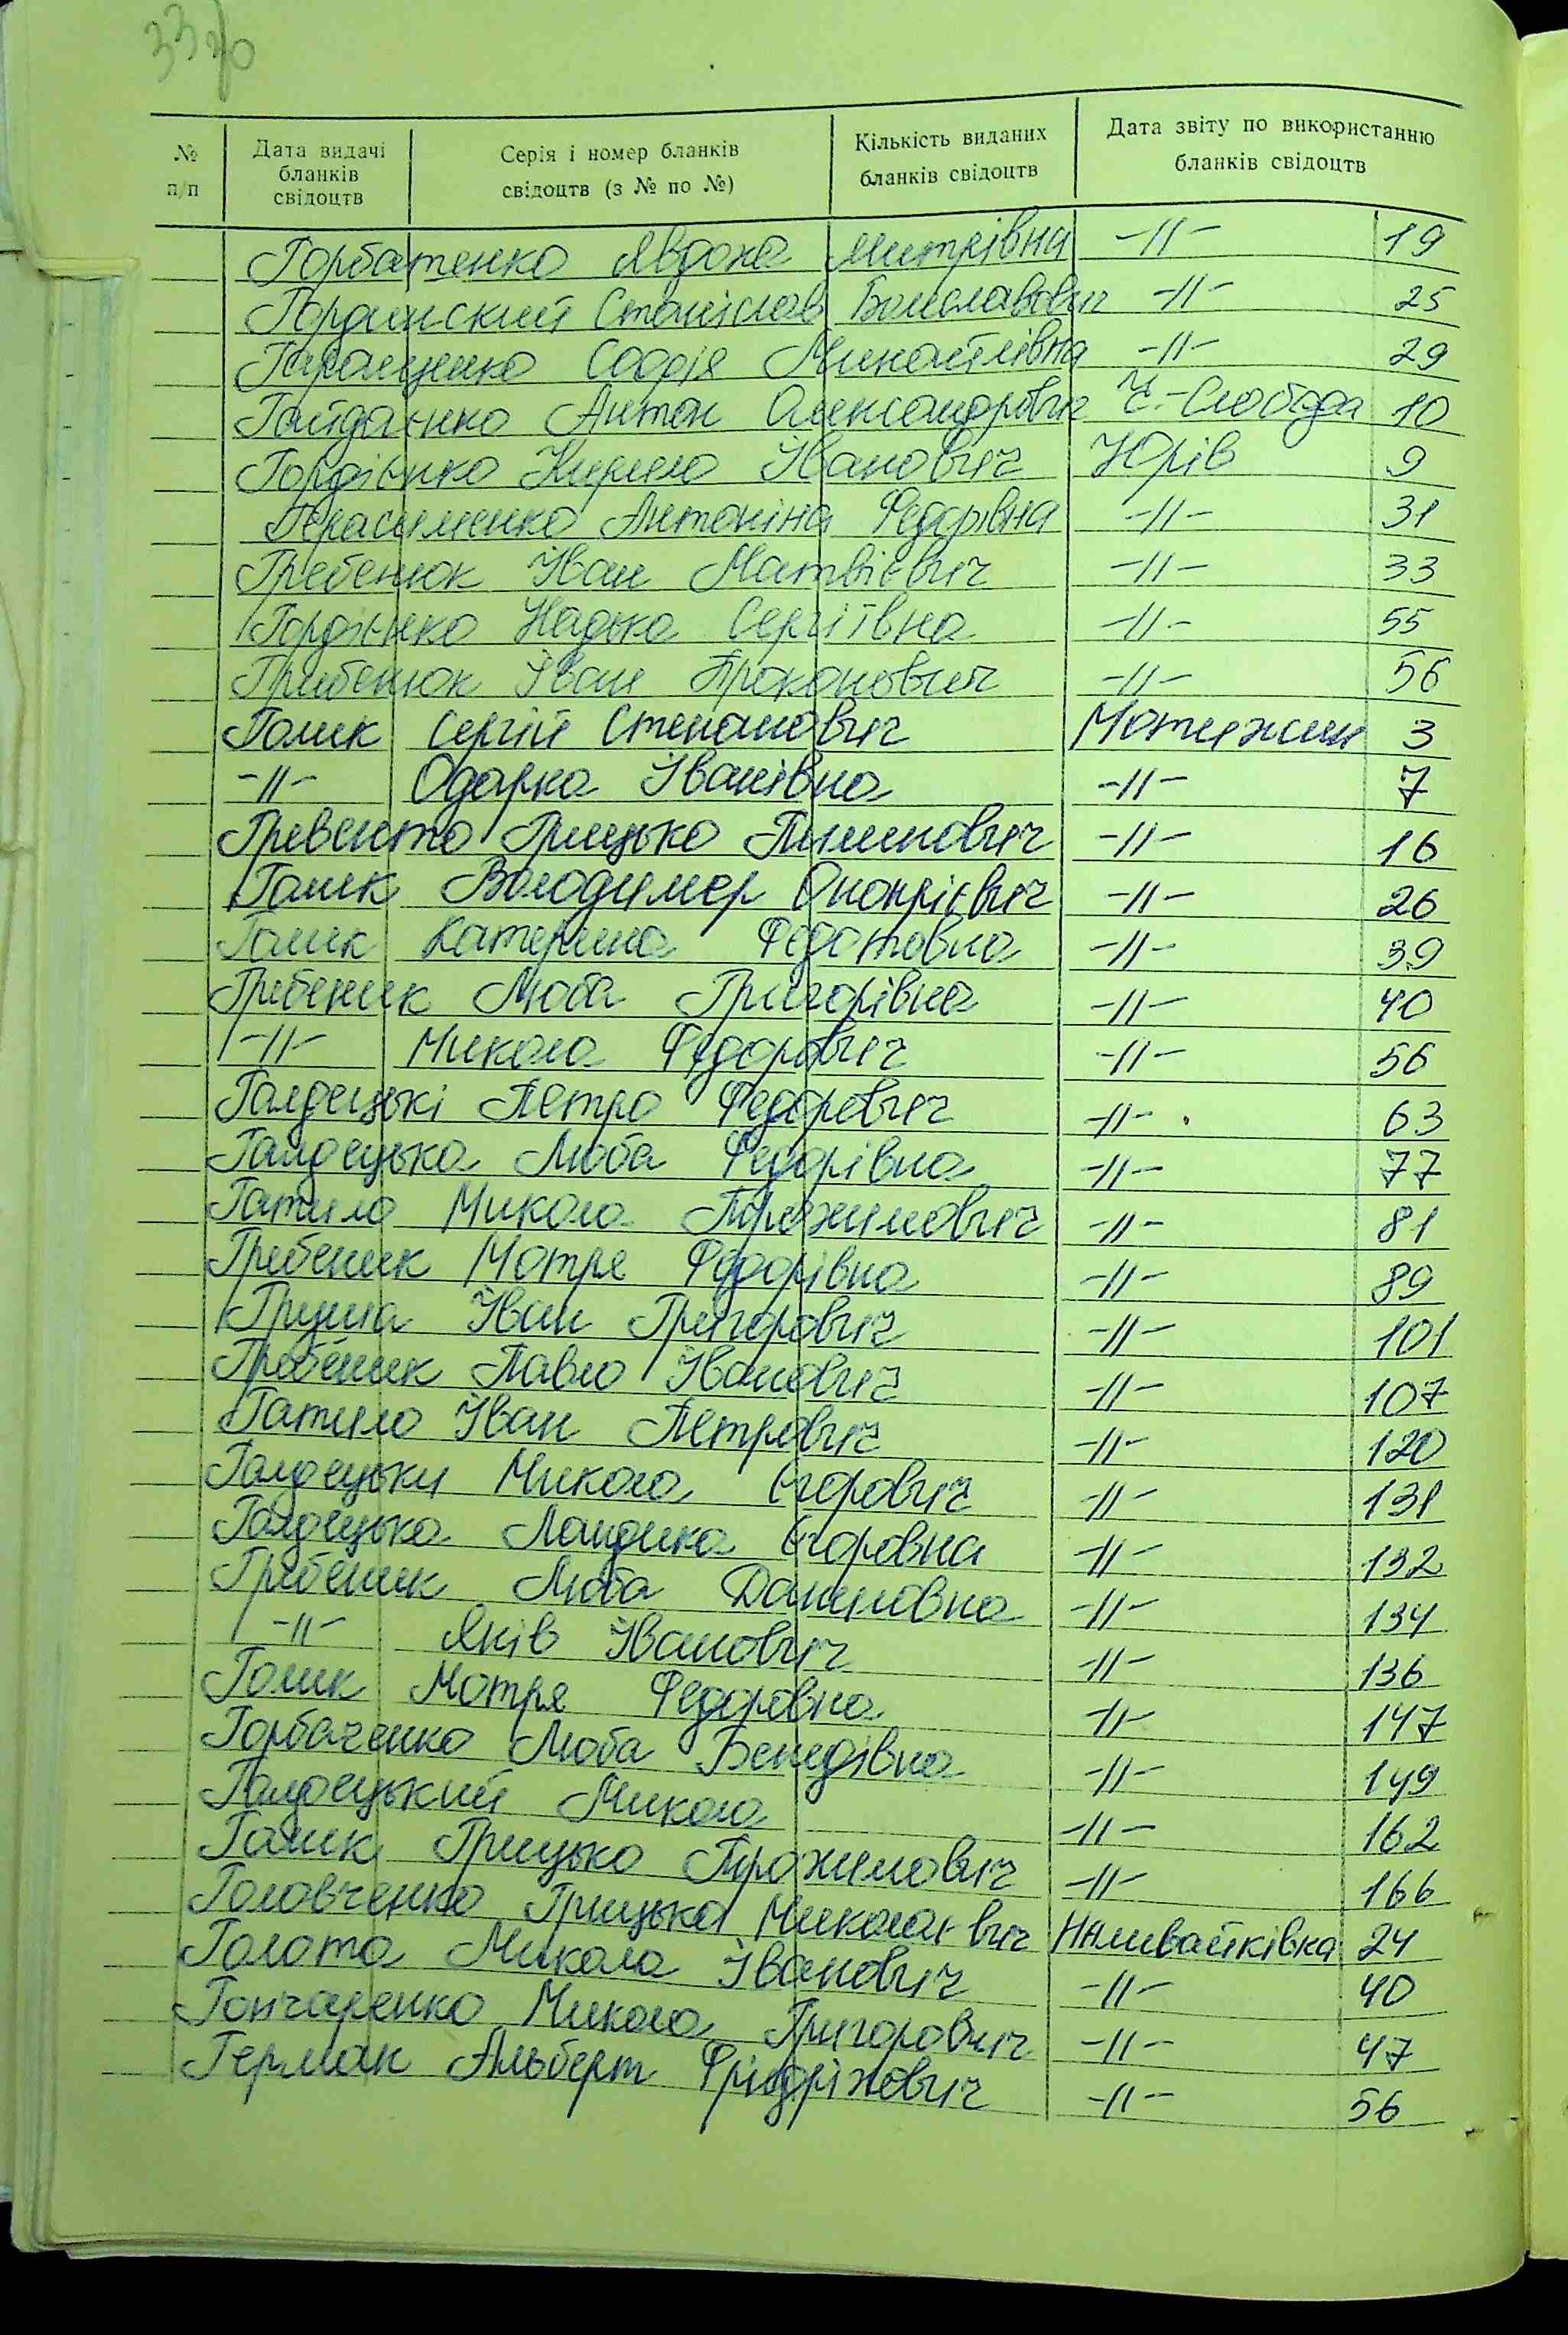 № п/п
Дата видачі бланків свідоцтв
Серія і номер бланків свідоцтв (з № по №)
Кількість виданих бланків свідоцтв
Дата звіту по використанню бланків свідоцтв
Горбатенко Явдоха Митрівна -//- 19
Гординский Станіслав Болеславович -//- 25
Геращенко Софія Михайлівна -//- 29
Гайдаєнко Антон Олександрович Ч.-Слобода 10
Гордієнко Кирило Іванович Юрів 9
Герасименко Антоніна Федорівна -//- 31
Гребенюк Іван Матвієвич -//- 33
Гордієнко Надька Сергіївна -//- 55
Грибенюк Іван Прокопович -//- 56
Голик Сергій Степанович Мотижин 3
-//- Одарка Іванівна -//- 7
Гревенто Грицько Пилипович -//- 16
Галик Володимер Онопрієвич -//- 26
Галик Катерина Федотовна -//- 39
Грибеник Люба Григорівна -//- 40
-//- Микола Федорович -//- 56
Галдецькі Петро Федорович -//- 63
Галдецька Люба Федорівна -//- 77
Гатило Микола Трохимович -//- 81
Грибеник Мотря Федорівна -//- 89
Груша Іван Григорович -//- 101
Гребеник Павло Іванович -//- 107
Гатило Іван Петрович -//- 120
Галдецьки Микола Єгорович -//- 131
Галдецька Ландика Єгоровна -//- 132
Грибеник Люба Даниловна -//- 134
-//- Яків Іванович -//- 136
Голик Мотря Федоровна -//- 147
Горбаченко Люба Бенедівна -//- 149
Галдецький Микола -//- 162
Галик Грицько Трохимович -//- 166
Головченко Грицька Миколаєвич Наливайківка 24
Голота Микола Іванович -//- 40
Гончаренко Микола Григорович -//- 47
Герман Альберт Фрідріхович -//- 56